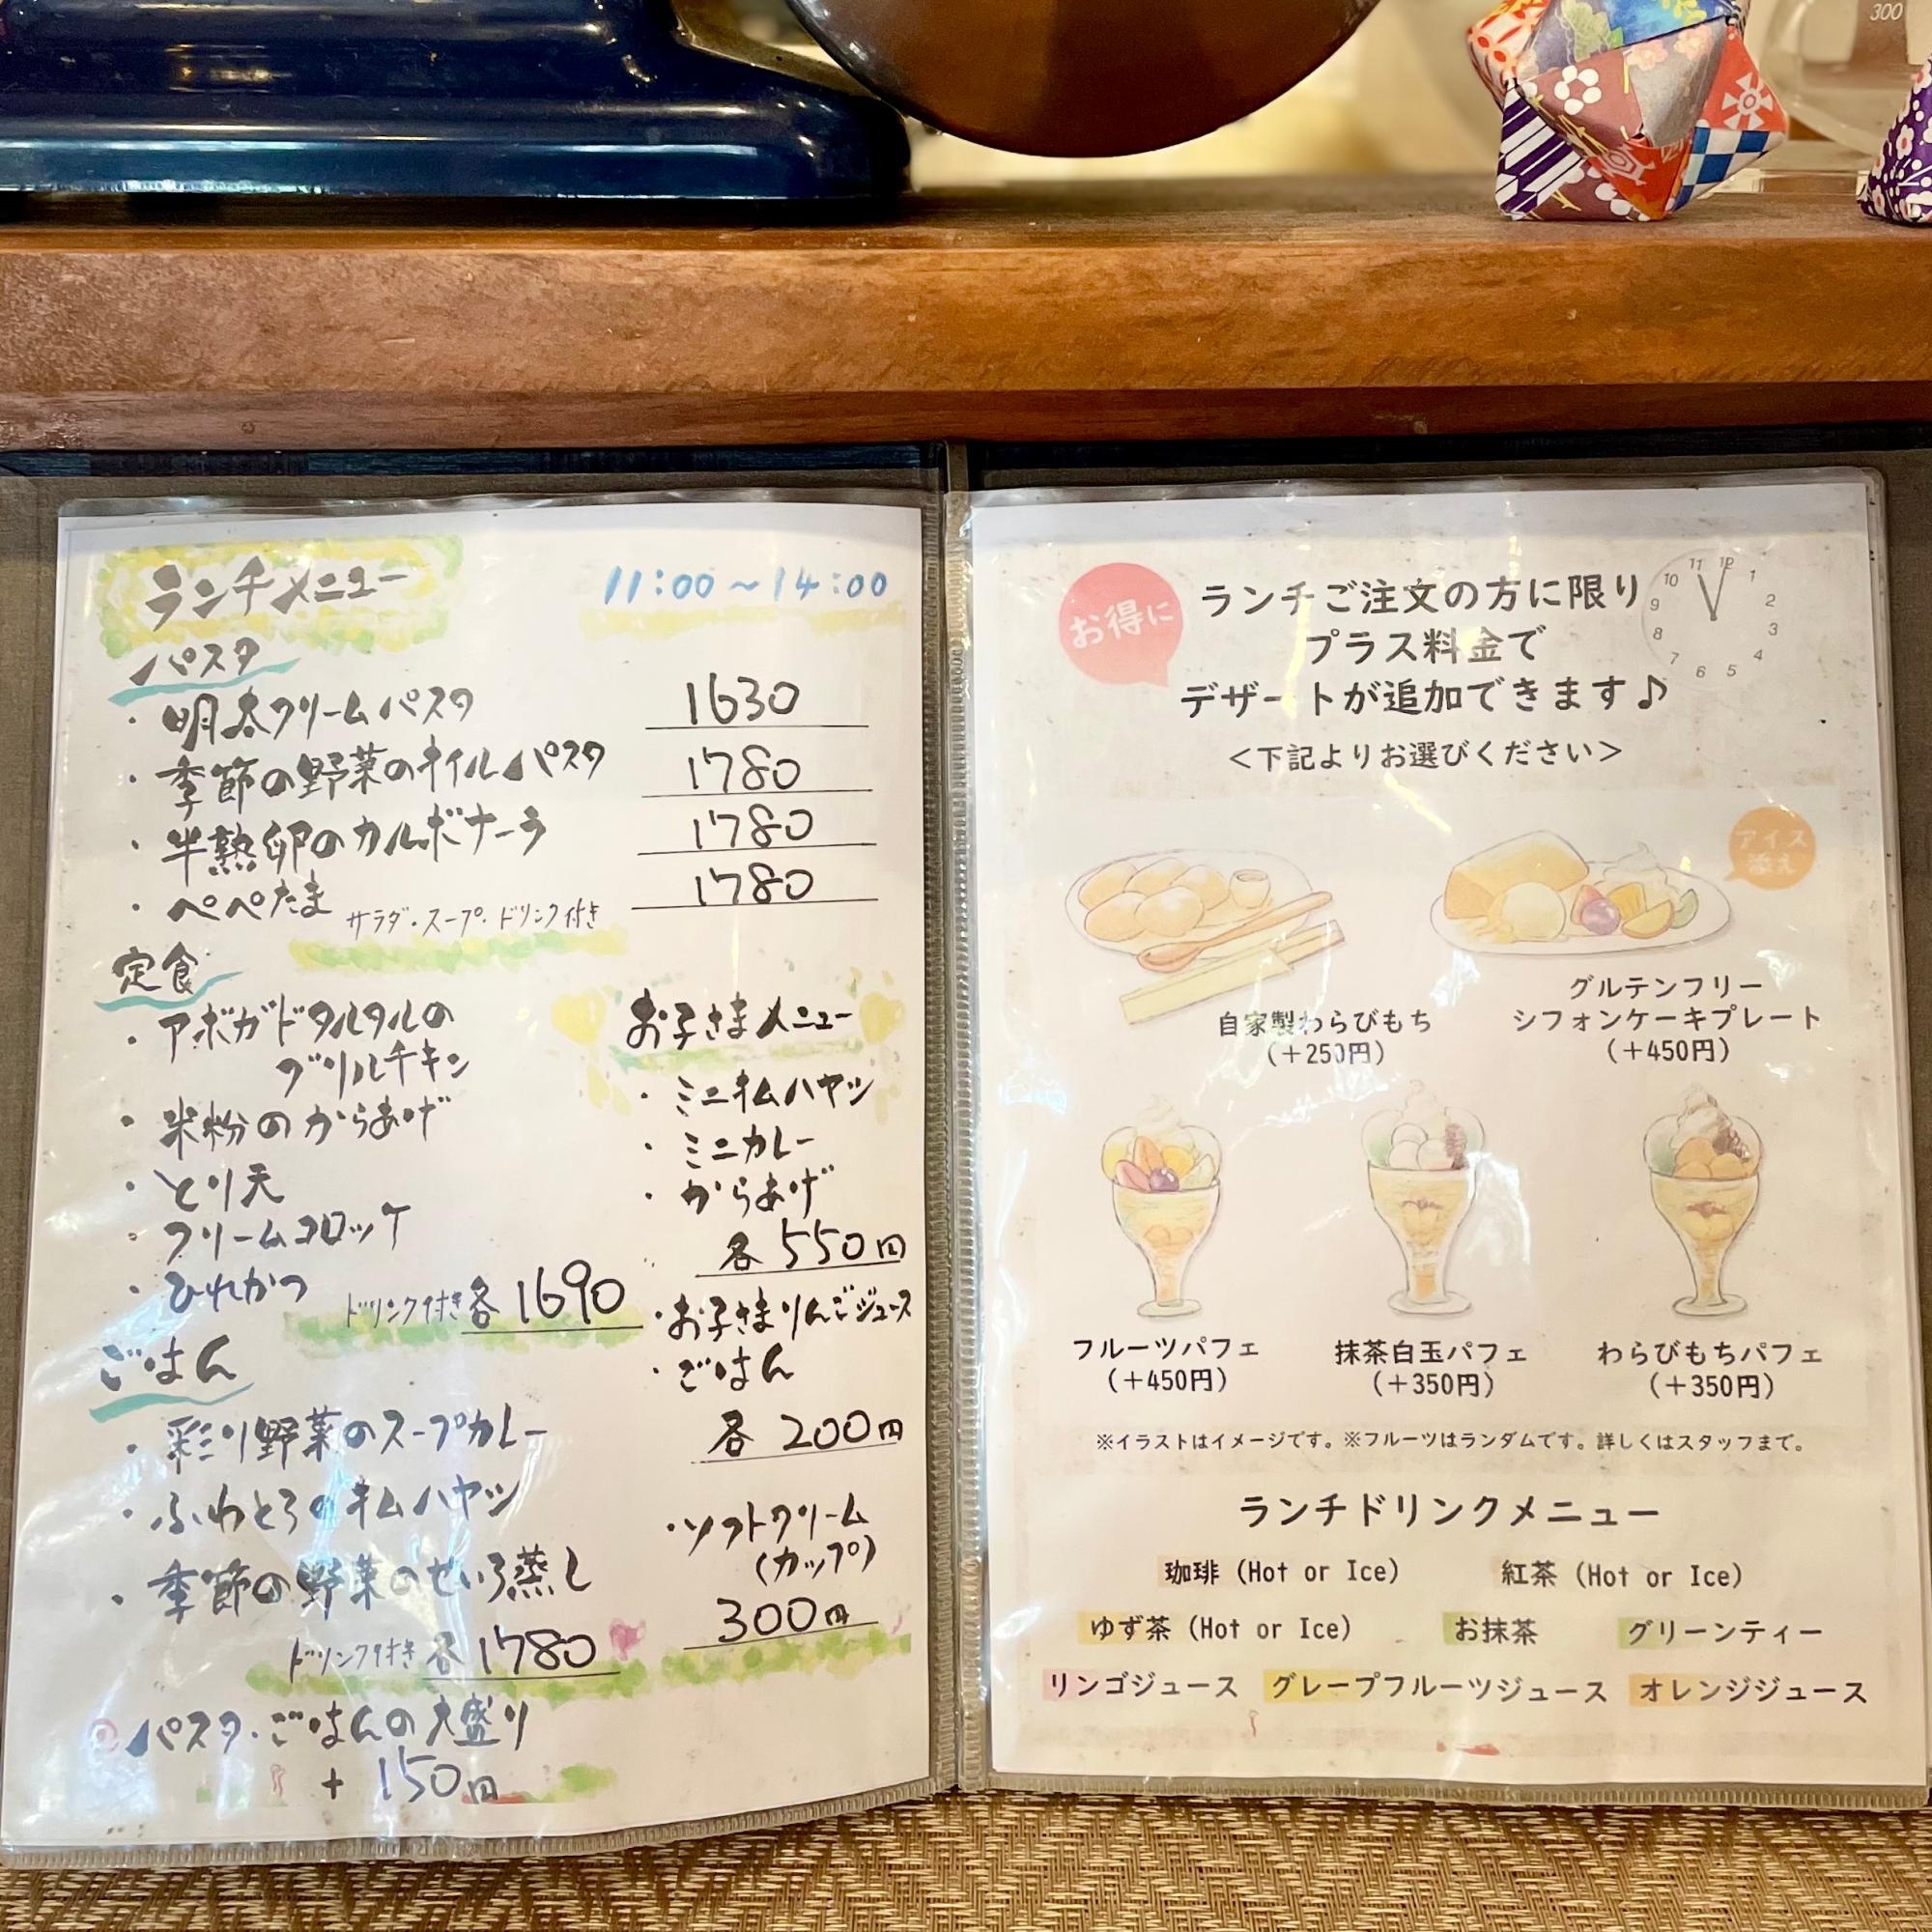 300
ランチメニュー
11:00～14:00
パスタ
・明太クリームパスタ 1630
・季節の野菜のオイルパスタ 1780
・半熟卵のカルボナーラ 1780
・ぺぺたま 1780
サラダ・スープ・ドリンク付き
定食
・アボガドタルタルの
グリルチキン
・米粉のからあげ
・とり天
・クリームコロッケ
・ひれかつ
ドリンク付き各1690
ごはん
・彩り野菜のスープカレー
・ふわとろオムハヤシ
・季節の野菜のせいろ蒸し
ドリンク付き各1780
パスタ・ごはんの大盛り
+150円
お子さまメニュー
・ミニオムハヤシ
・ミニカレー
・からあげ
各550円
・お子さまりんごジュース
・ごはん
各200円
・ソフトクリーム
(カップ)
300円
お得に
ランチご注文の方に限り
プラス料金で
デザートが追加できます♪
＜下記よりお選びください＞
11 12 1
10 2
9 3
8 4
7 6 5
アイス
添え
自家製わらびもち
(＋250円)
グルテンフリー
シフォンケーキプレート
(＋450円)
フルーツパフェ
(＋450円)
抹茶白玉パフェ
(＋350円)
わらびもちパフェ
(＋350円)
※イラストはイメージです。※フルーツはランダムです。詳しくはスタッフまで。
ランチドリンクメニュー
珈琲 (Hot or Ice) 紅茶 (Hot or Ice)
ゆず茶 (Hot or Ice) お抹茶 グリーンティー
リンゴジュース グレープフルーツジュース オレンジジュース